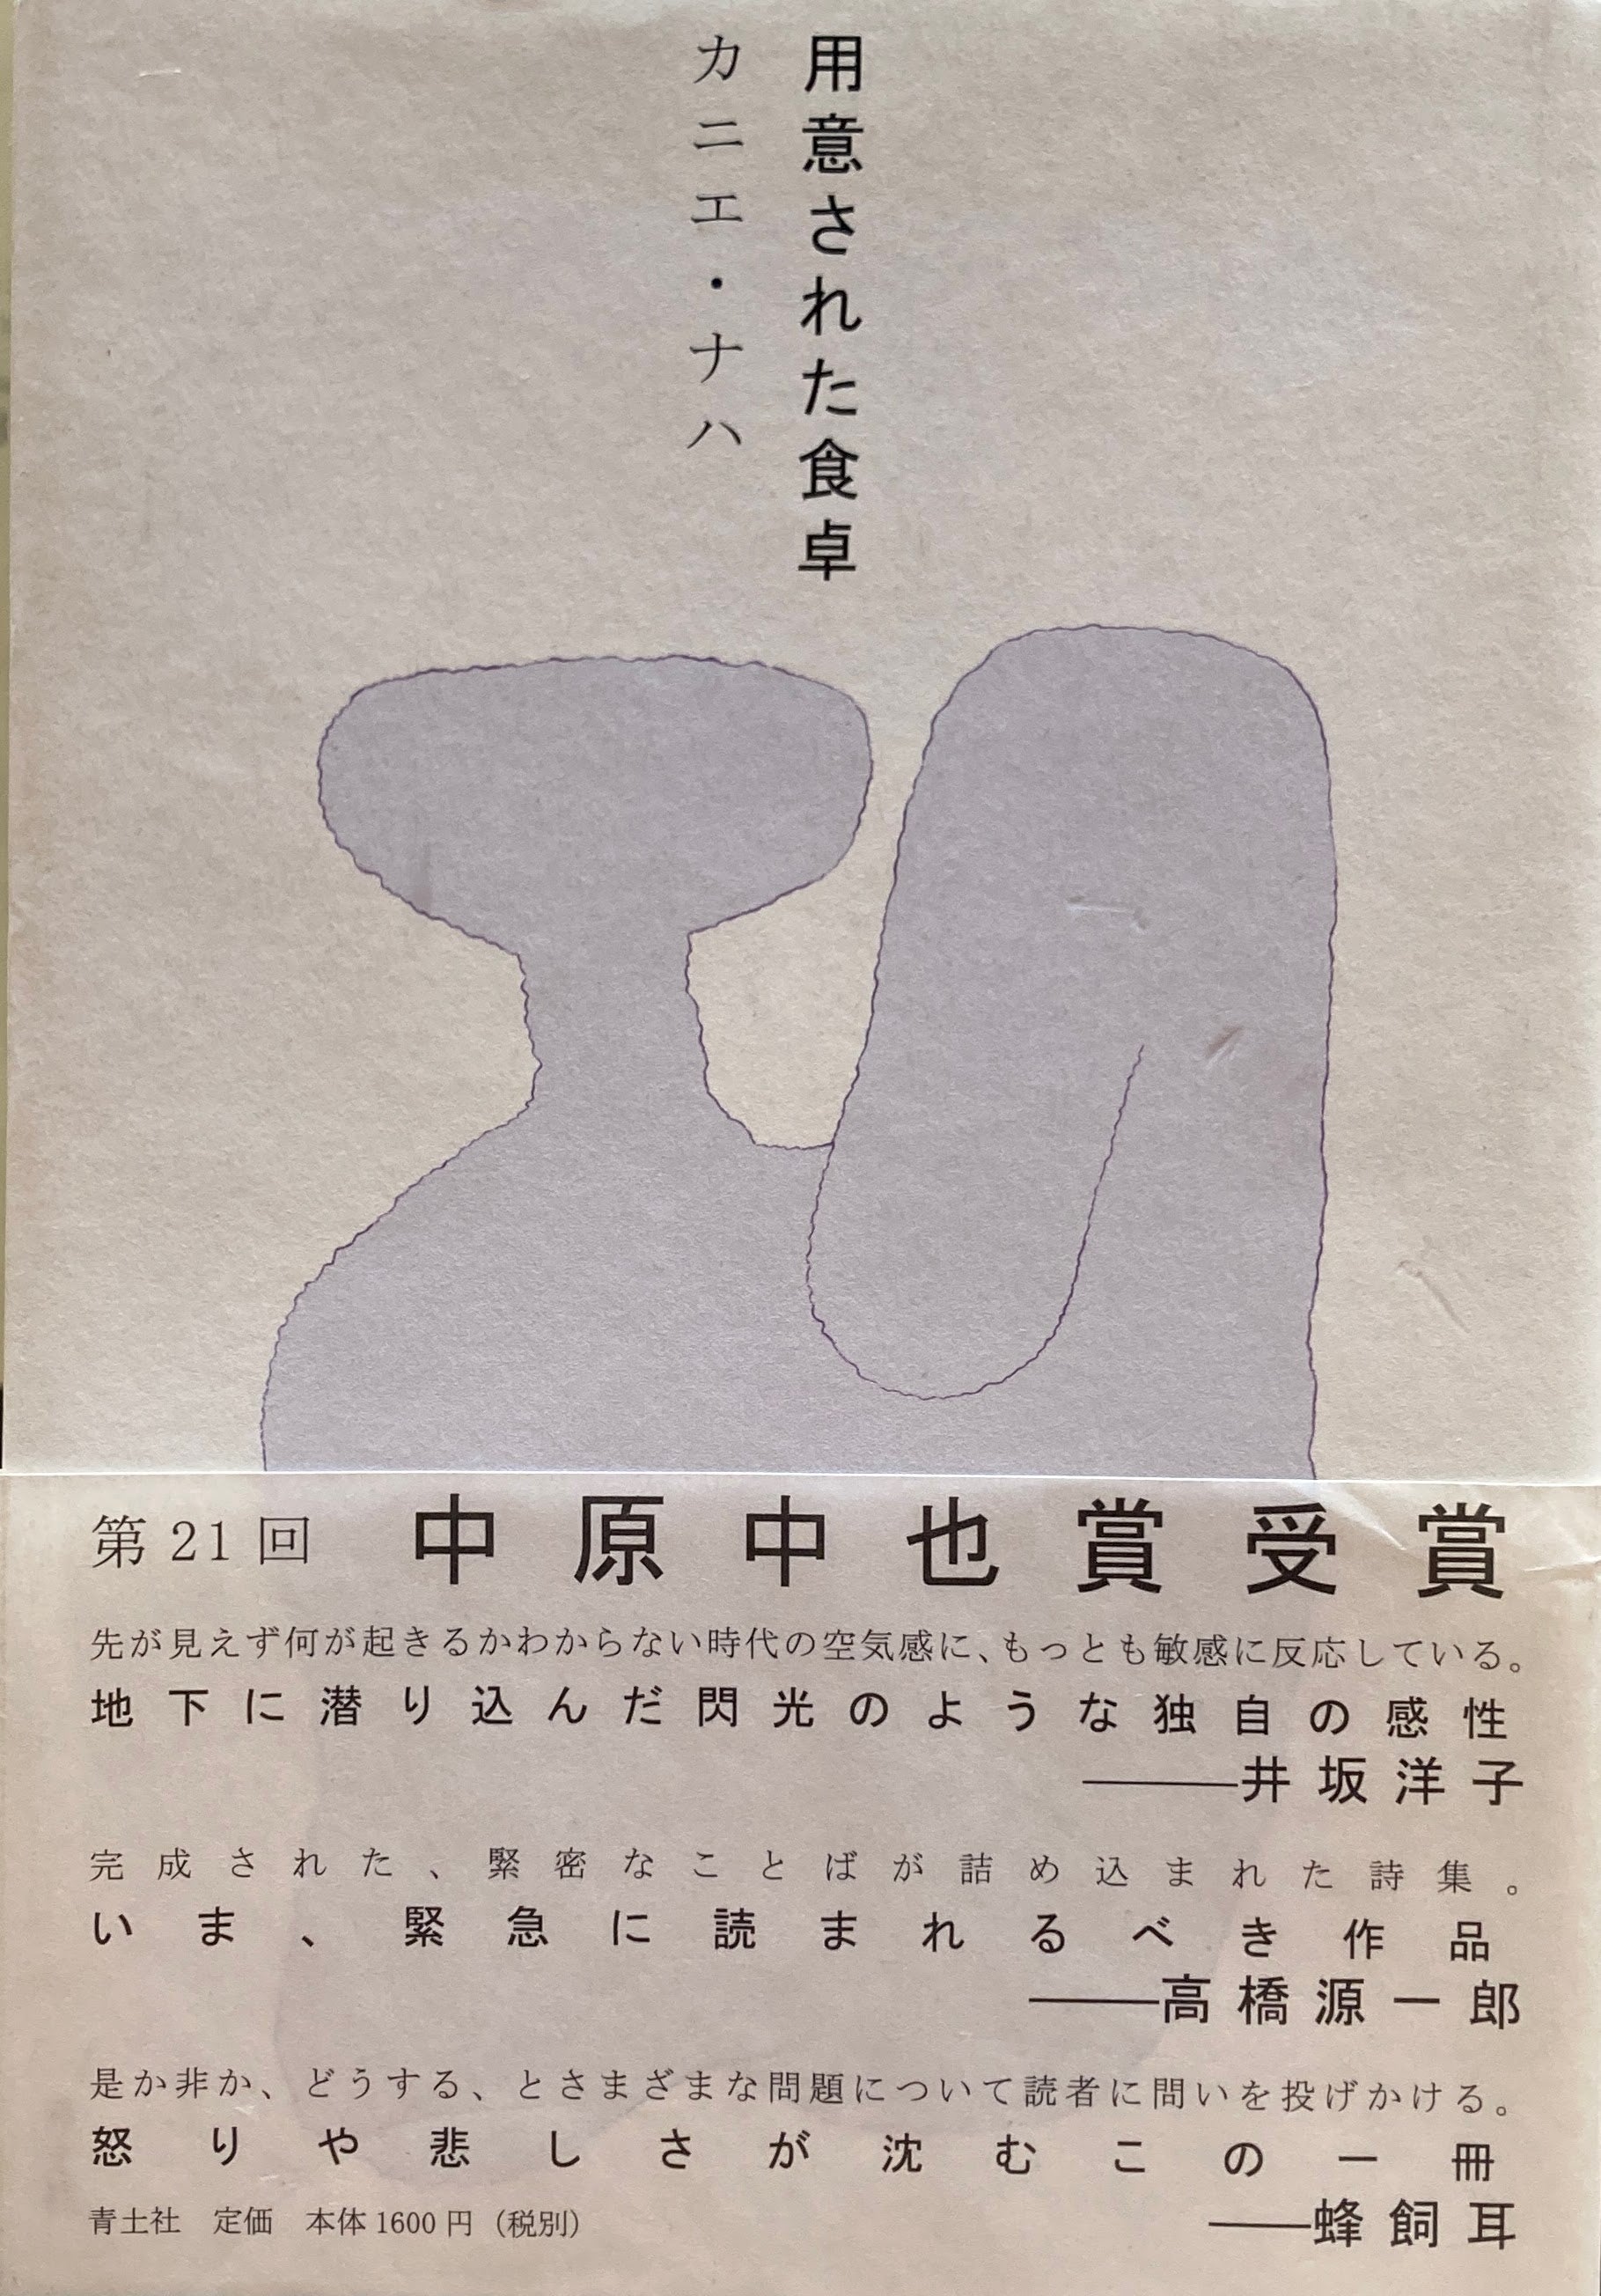 用意された食卓
カニエ・ナハ
第21回 中原中也賞受賞
先が見えず何が起きるかわからない時代の空気感に、もっとも敏感に反応している。
地下に潜り込んだ閃光のような独自の感性
――井坂洋子
完成された、緊密なことばが詰め込まれた詩集。
いま、緊急に読まれるべき作品
――高橋源一郎
是か非か、どうする、とさまざまな問題について読者に問いを投げかける。
怒りや悲しさが沈むこの一冊
――蜂飼耳
青土社 定価 本体1600円（税別）